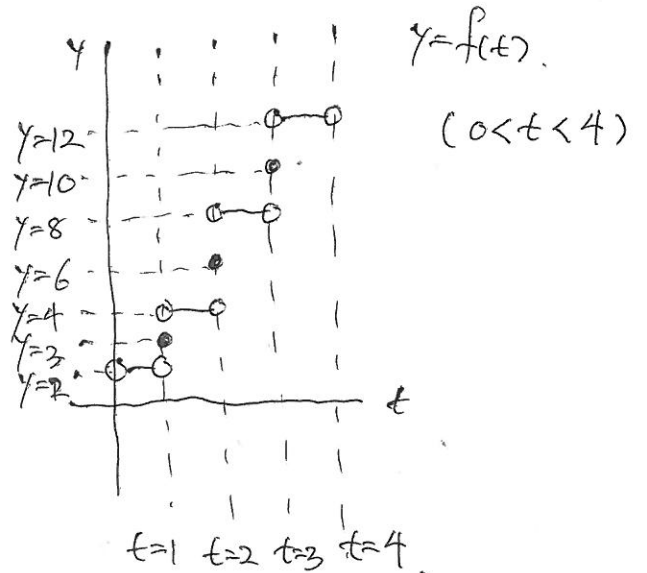 y=f(t).
(0<t<4)
y
y=12
y=10
y=8
y=6
y=4
y=3
y=2
t
t=1 t=2 t=3 t=4